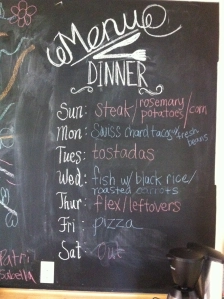 Menu
DINNER
Sun: steak/rosemary potatoes/corn
Mon: Swiss chard tacos/fresh beans
Tues: tostadas
Wed: fish w/black rice/
roasted carrots
Thur: flex/leftovers
Fri: pizza
Sat: out